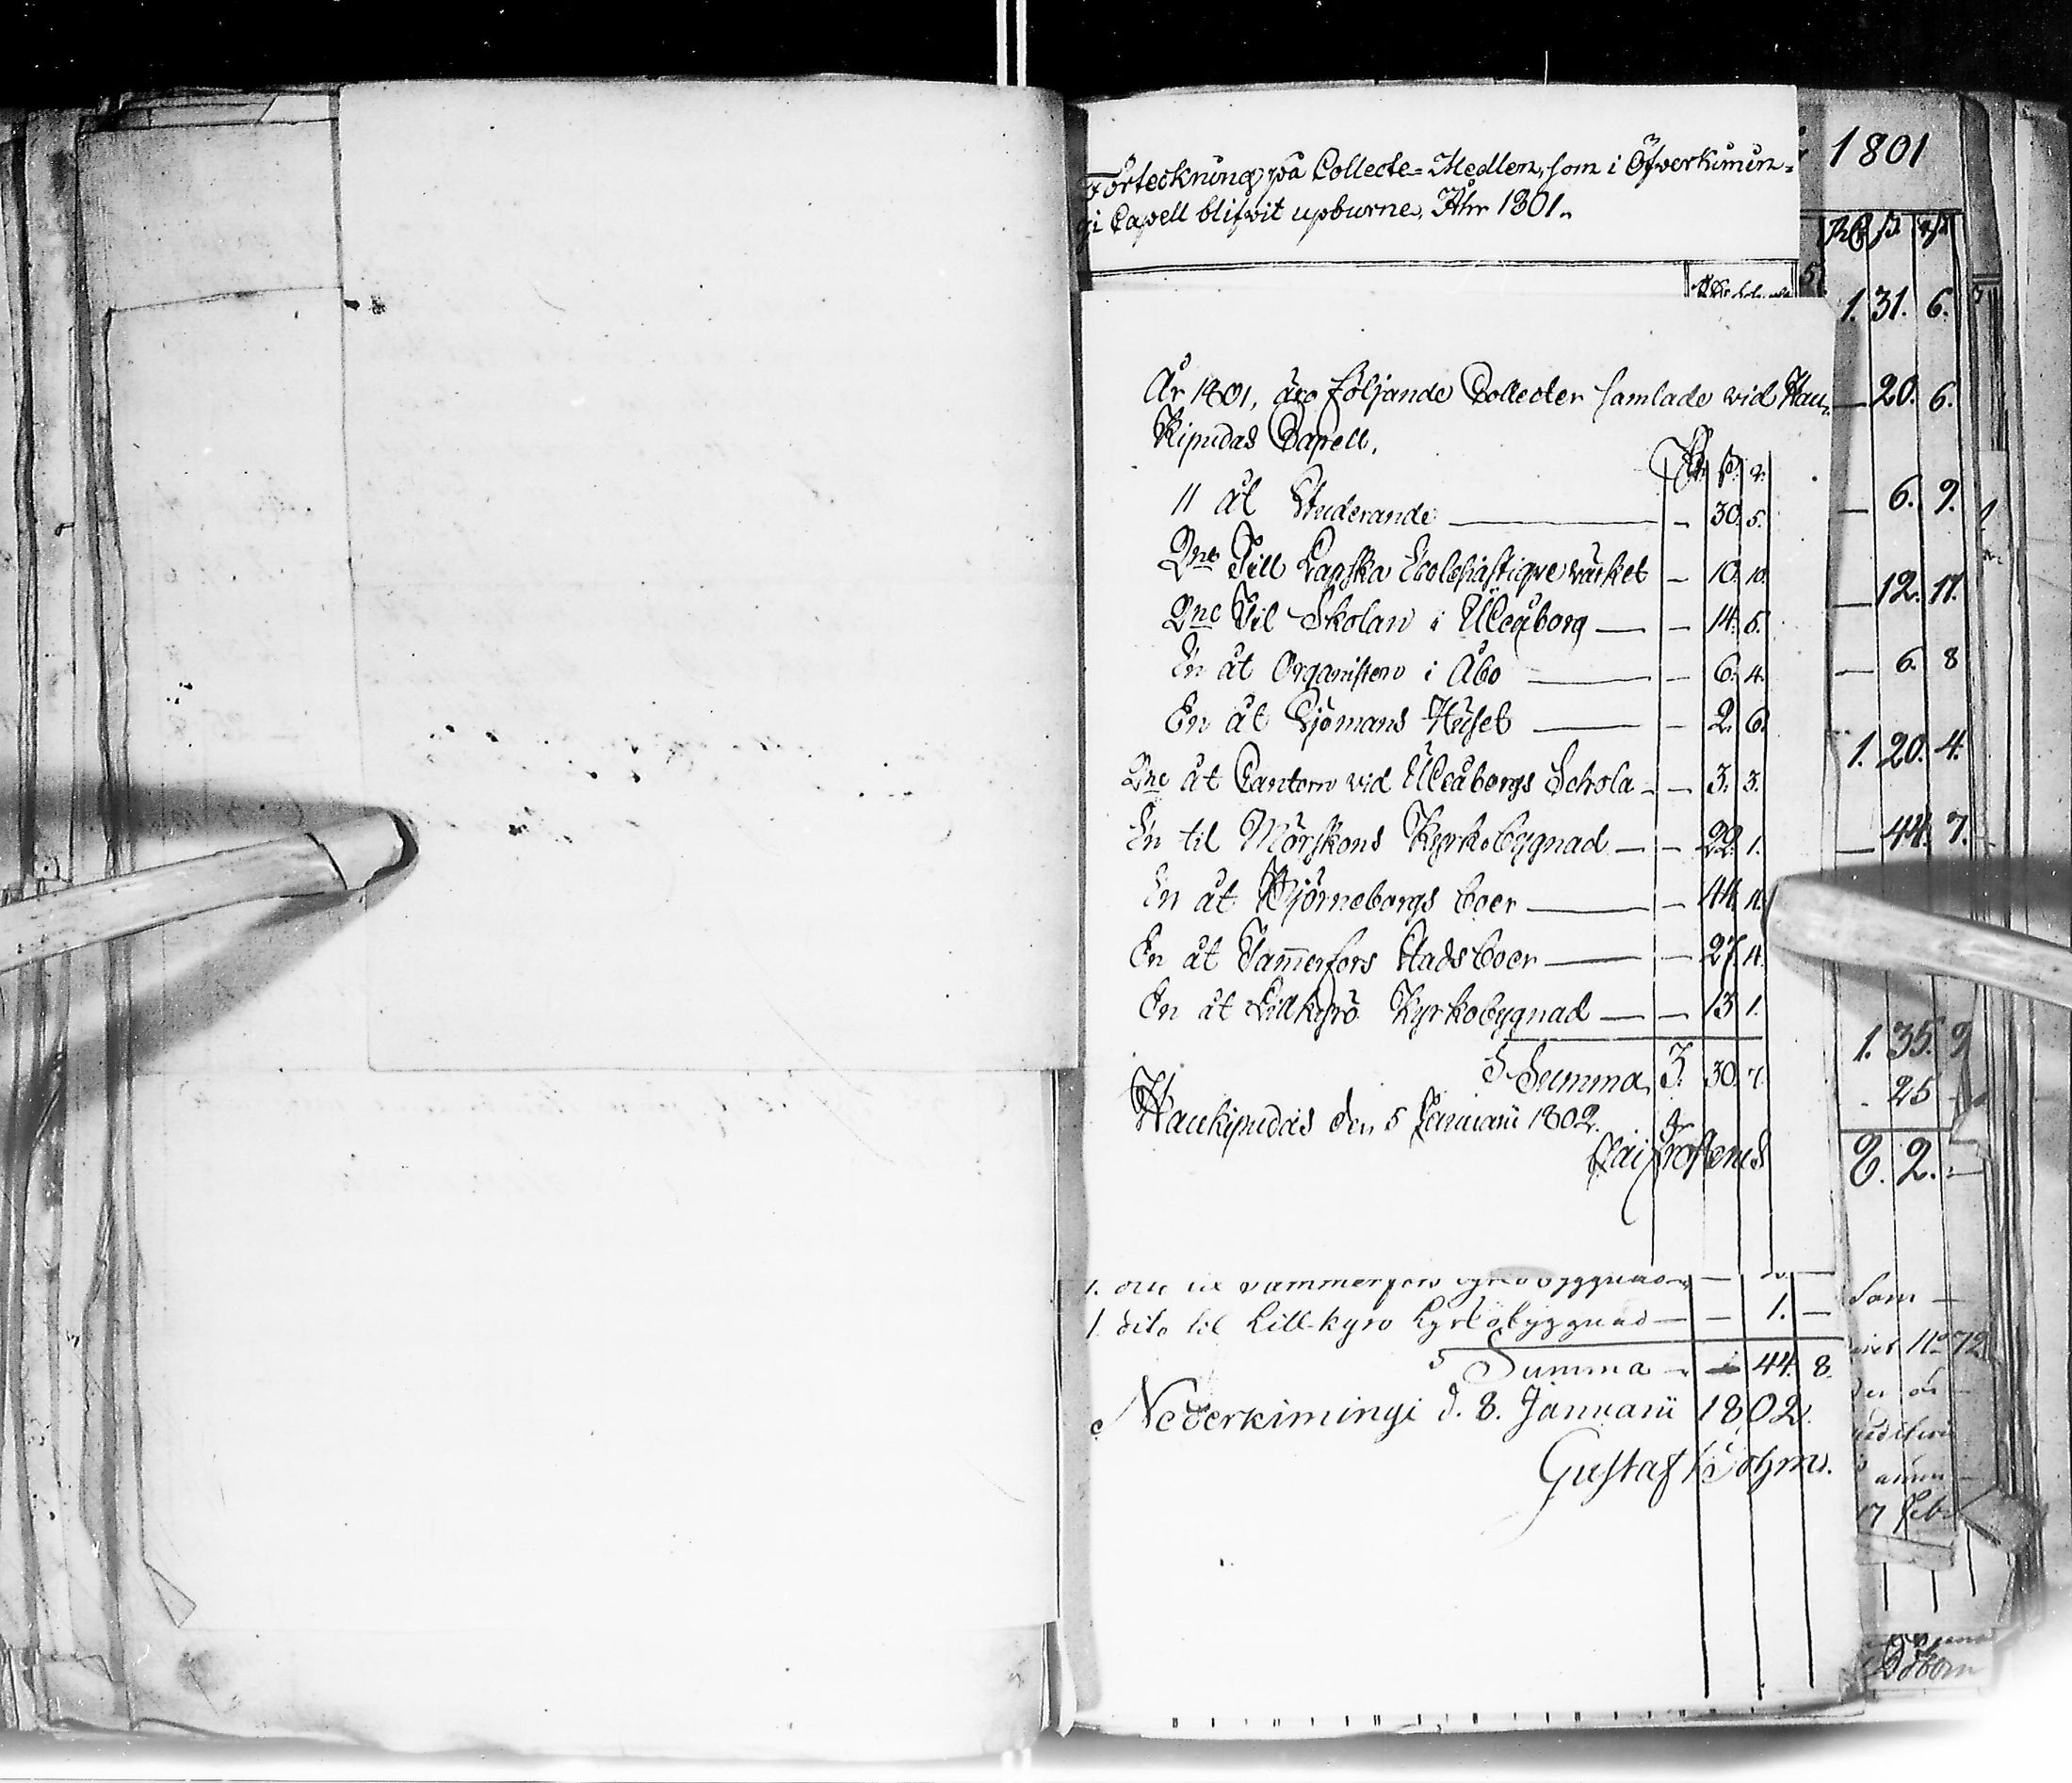 Förteckning på Collecte=Medlen, som i Öfverkimin=
gi Capell blifvit upburne, Åhr 1801.
År 1801, äro följande Collecter samlade vid Hau=
kipudas Capell.
11 åt Studerande — — 30. 5.
Dne Till Lapska Ecclesiastique värket — 10. 10.
Dne Til Skolan i Uleåborg — — 14. 5.
En åt Organisten i Åbo — — 6. 4.
En åt Sjömans Huset — — 2. 6.
Dne åt Cantorn vid Uleåborgs Schola — — 3. 3.
En til Mörskoms Kyrkobygnad — — 22. 1.
En åt Björneborgs boer — — 44. 11.
En åt Tam̄erfors Stadsboer — — 27. 11.
En åt Lillkyrö Kyrkobygnad — — 13. 1.
Summa 3. 30. 7.
Haukipudas den 5 Januarii 1802.
1. dito til Lill-kyro kyrkobyggnad — — 1. —
Summa — 44. 8.
Nederkimingi d. 8. Januarii 1802.
Gustaf
1801
1. 31. 6.
— 20. 6.
— 6. 9.
— 12. 11.
— 6. 8
1. 20. 4.
— 44. 7.
1. 35. 9
- 25 -
8. 2. —
Som —
17 Feb